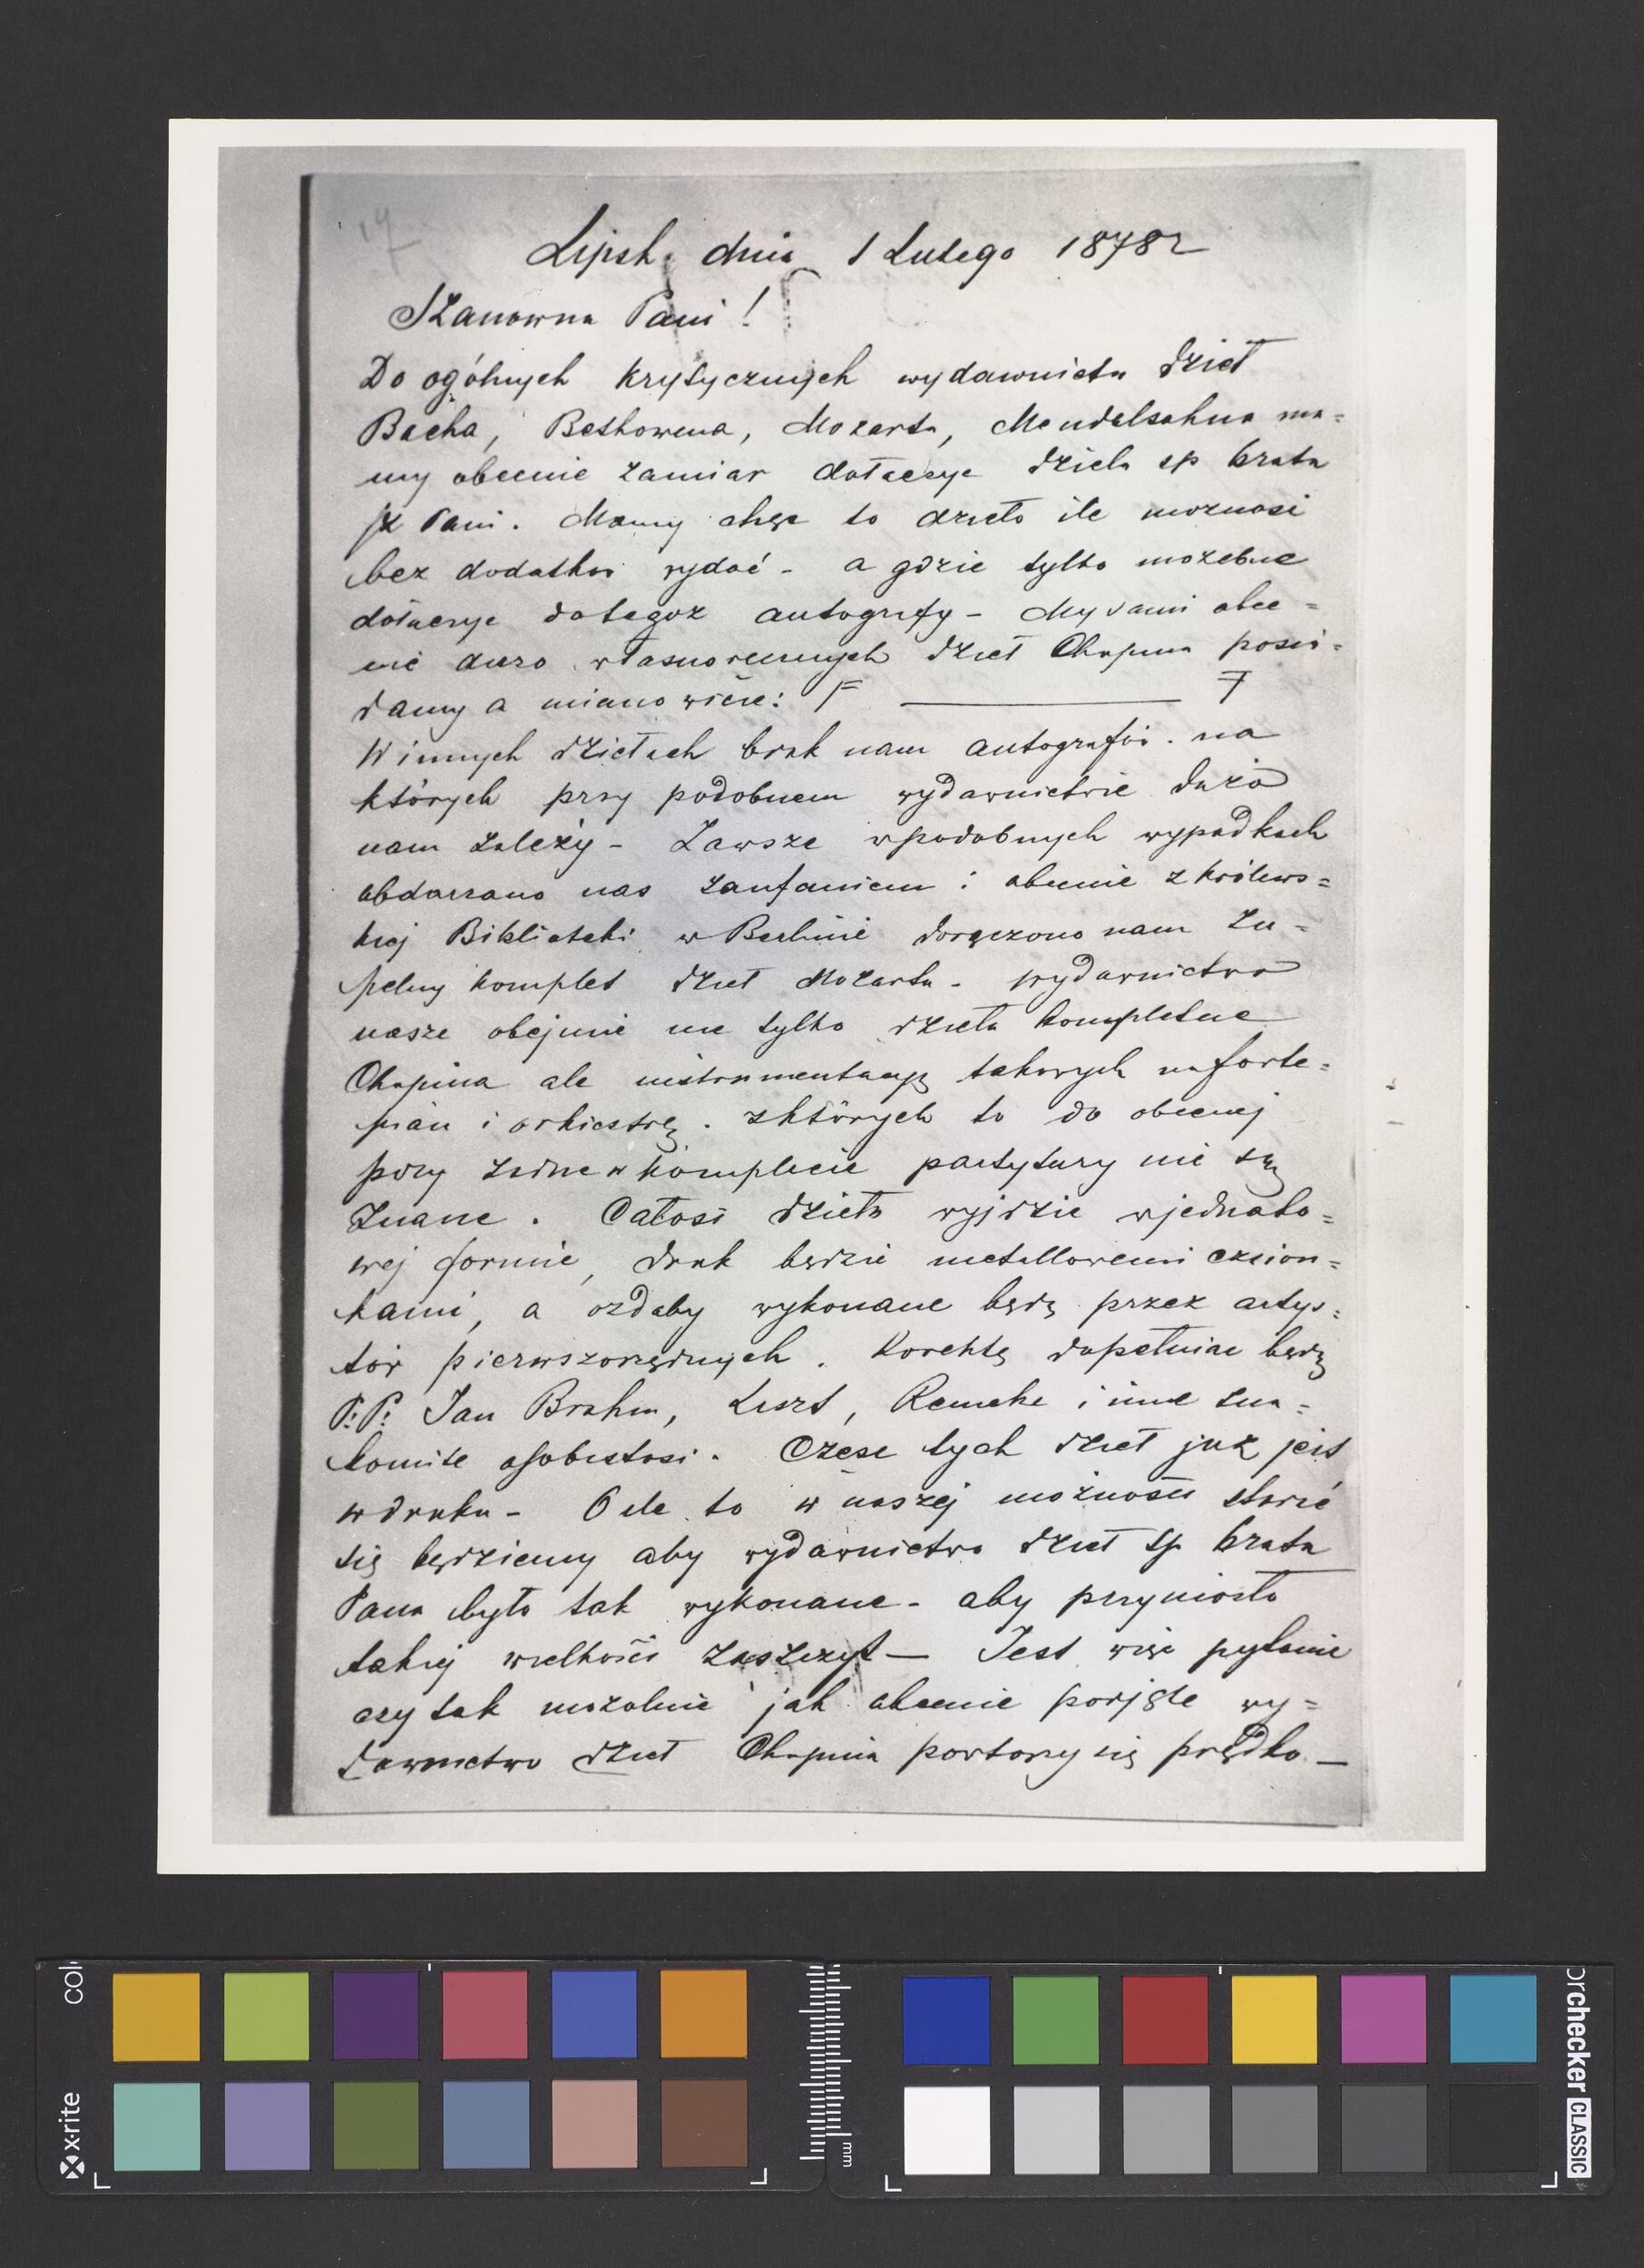 17
Lipsk dnia 1 Lutego 1878 r
Szanowna Pani !
Do ogólnych krytycznych wydawnictw dzieł
Bacha, Bethowena, Mozarta, Mendelsohna ma=
my obecnie zamiar dołaczyc dzieła sp brata
JW Pani. Mamy chęc to dzieło ile moznosi
bez dodatkow wydać - a gdzie tylko możebne
dołaczyc dotegoz autografy - My sami obec=
nie duzo własnorecznych dzieł Chopina posia=
damy a mianowicie: F ——— F
W innych dziełach brak nam autografów. na
których przy podobnem wydawnictwie dużo
nam zależy - Zawsze wpodobnych wypadkach
obdarzano nas zaufaniem i obecnie z królews=
kiej Biblioteki w Berlinie doręczono nam zu=
pelny komplet dzieł Mozarta - wydawnictwo
nasze obejmie nie tylko dzieła kompletne
Chopina ale instrumentacyę takowych na forte=
pian i orkiestrę. zktórych to do obecnej
pory zadne w komplecie partytury nie są
Znane. Całosi dzieła wyjdzie wjednako=
wej formie, druk będzie metallowemi czcion=
kami, a ozdoby wykonane będą przez artys=
tów pierwszorzędnych. Korektę dopełniac będą
P:P: Jan Brahm, Liszt, Reineke i inne zna=
komite osobistosi. Czesc tych dzieł już jest
w druku - O ile to w naszej możności starać
się będziemy aby wydawnictwo dzieł sp brata
Pana było tak wykonane - aby przyniosło
takiej wielkości zaszczyt — Jest więc pytanie
czy tak mozolnie jak obecnie podjęte wy=
dawnictwo dzieł Chopina powtorzy się prędko —
x-rite
colorchecker CLASSIC
mm